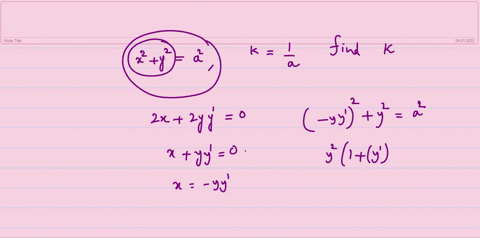 Note Title
x² + y² = a²,
K = 1/a find K
2x + 2yy' = 0
x + yy' = 0.
x = -yy'
(-yy')² + y² = a²
y² (1+(y')